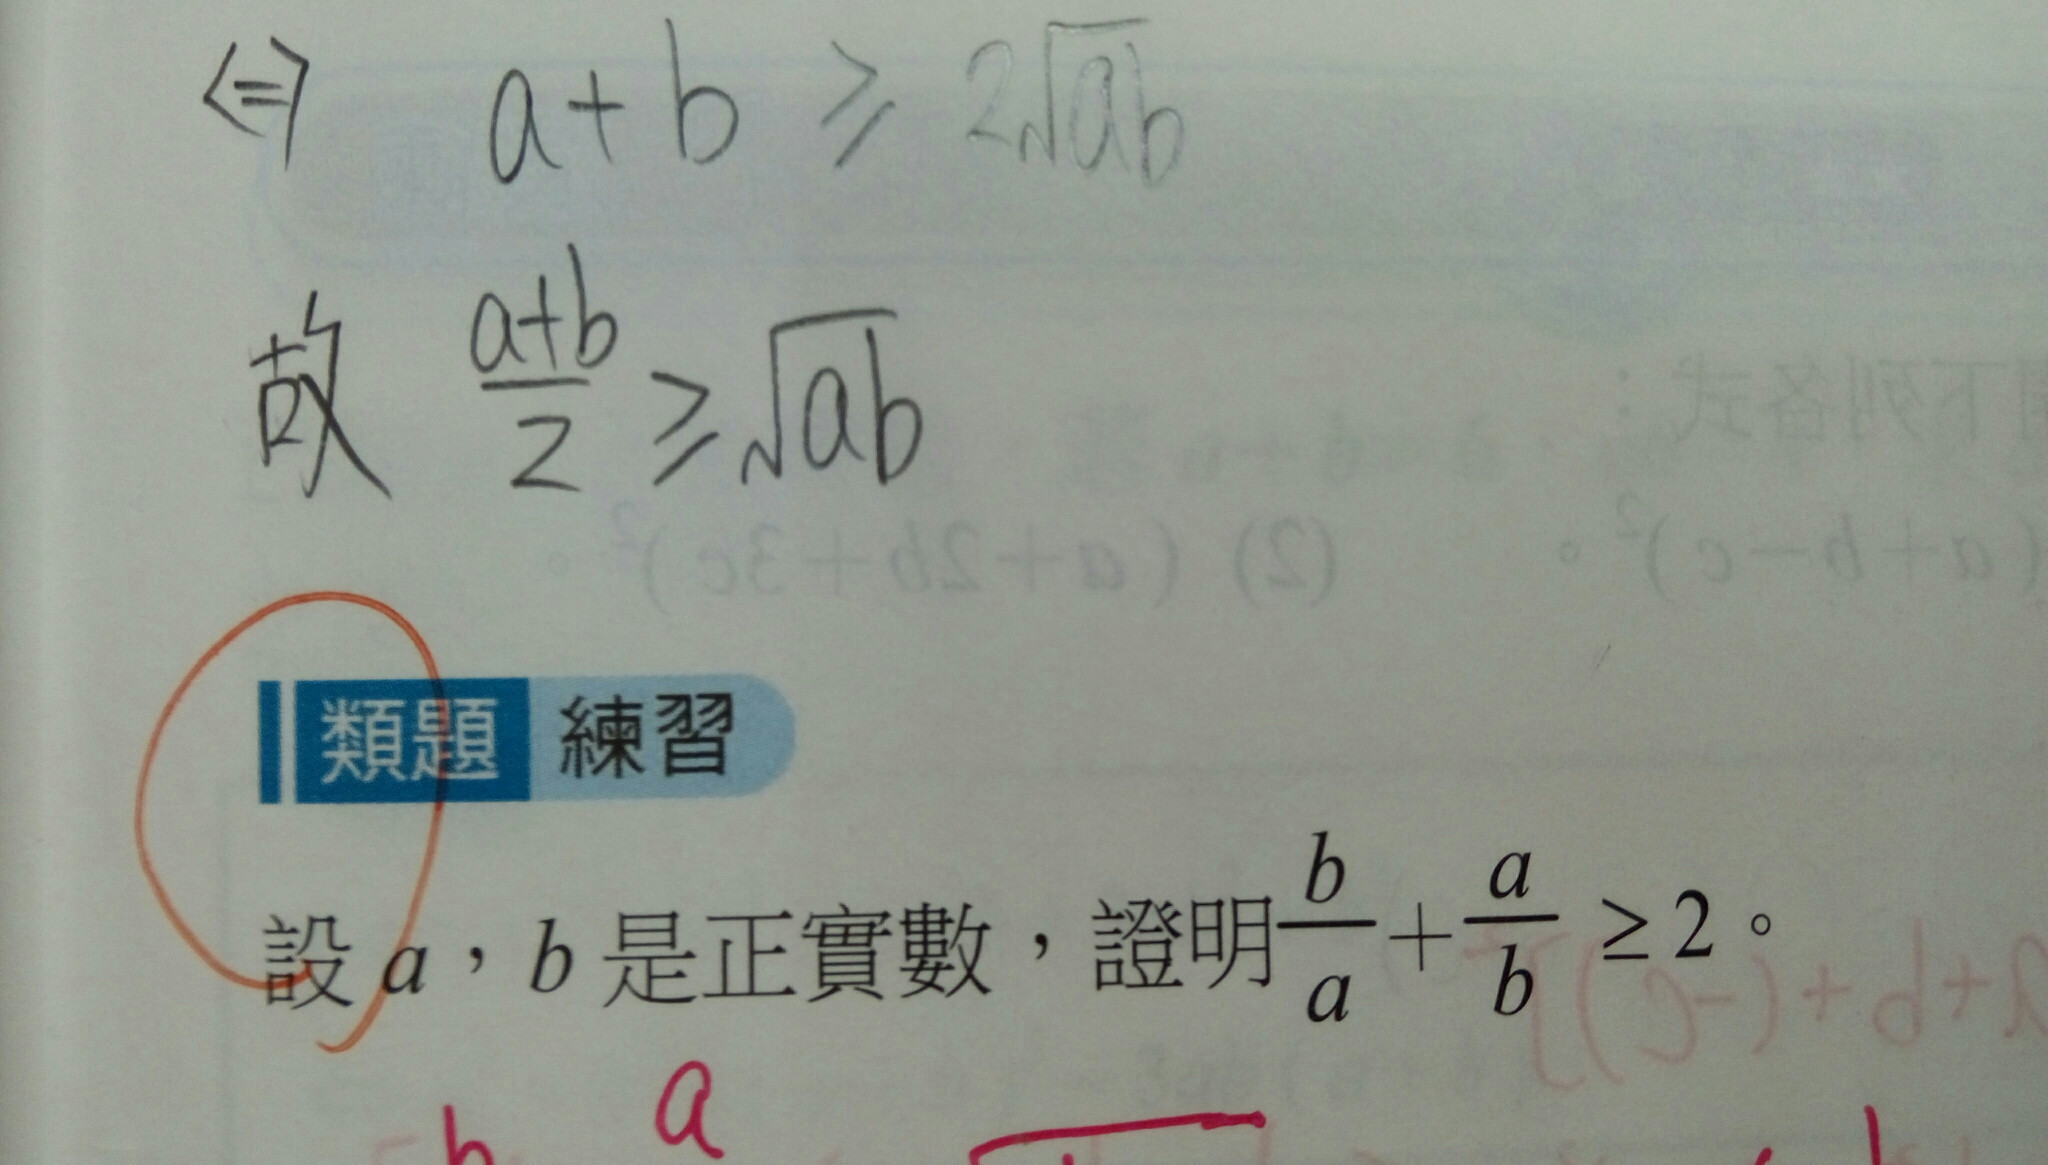 ⇔ a+b ≥ 2√ab
故 (a+b)/2 ≥ √ab
類題 練習
設 a，b 是正實數，證明 b/a + a/b ≥ 2。
a
b